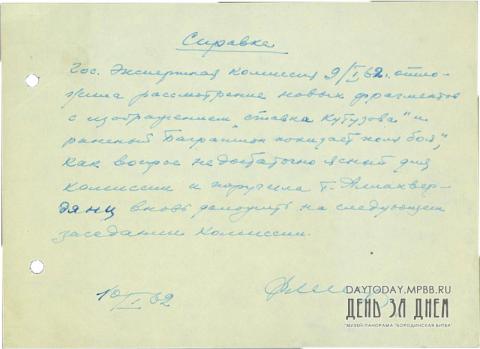 Справка
Гос. Экспертная комиссия 9/I 62. отло-
жила рассмотрение новых фрагментов
с изображением „ставка Кутузова" и
раненый Багратион покидает поле боя",
как вопрос недостаточно ясный для
комиссии и поручила т. Аллахвер-
дянц вновь доложить на следующем
заседании комиссии.
10/I 62
DAYTODAY.MPBB.RU
ДЕНЬ ЗА ДНЕМ
"МУЗЕЙ-ПАНОРАМА "БОРОДИНСКАЯ БИТВА"